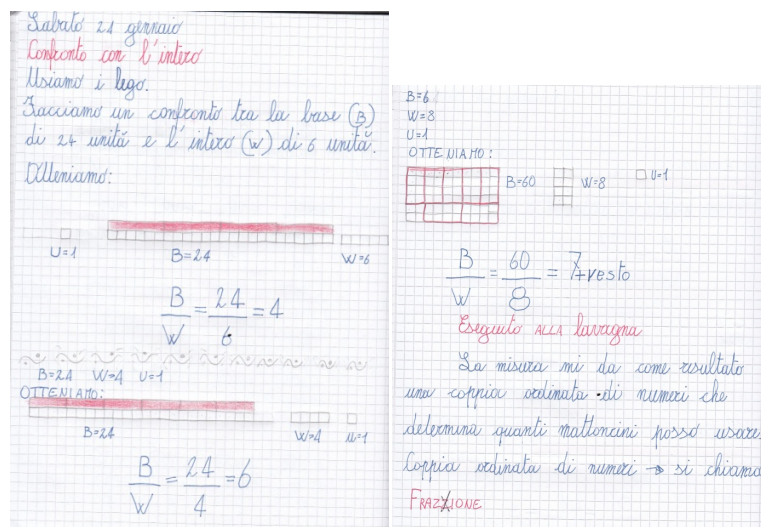 Sabato 21 gennaio
Confronto con l'intero
Usiamo i lego.
Facciamo un confronto tra la base (B)
di 24 unità e l'intero (W) di 6 unità.
Otteniamo:
U=1 B=24 W=6
B/W = 24/6 = 4
B=24 W=4 U=1
OTTENIAMO:
B=24 W=4 U=1
B/W = 24/4 = 6
B=6
W=8
U=1
OTTENIAMO:
B=60 W=8 U=1
B/W = 60/8 = 7+resto
Eseguito ALLA lavagna
La misura mi da come risultato
una coppia ordinata di numeri che
determina quanti mattoncini posso usare.
Coppia ordinata di numeri → si chiama
FRAZIONE